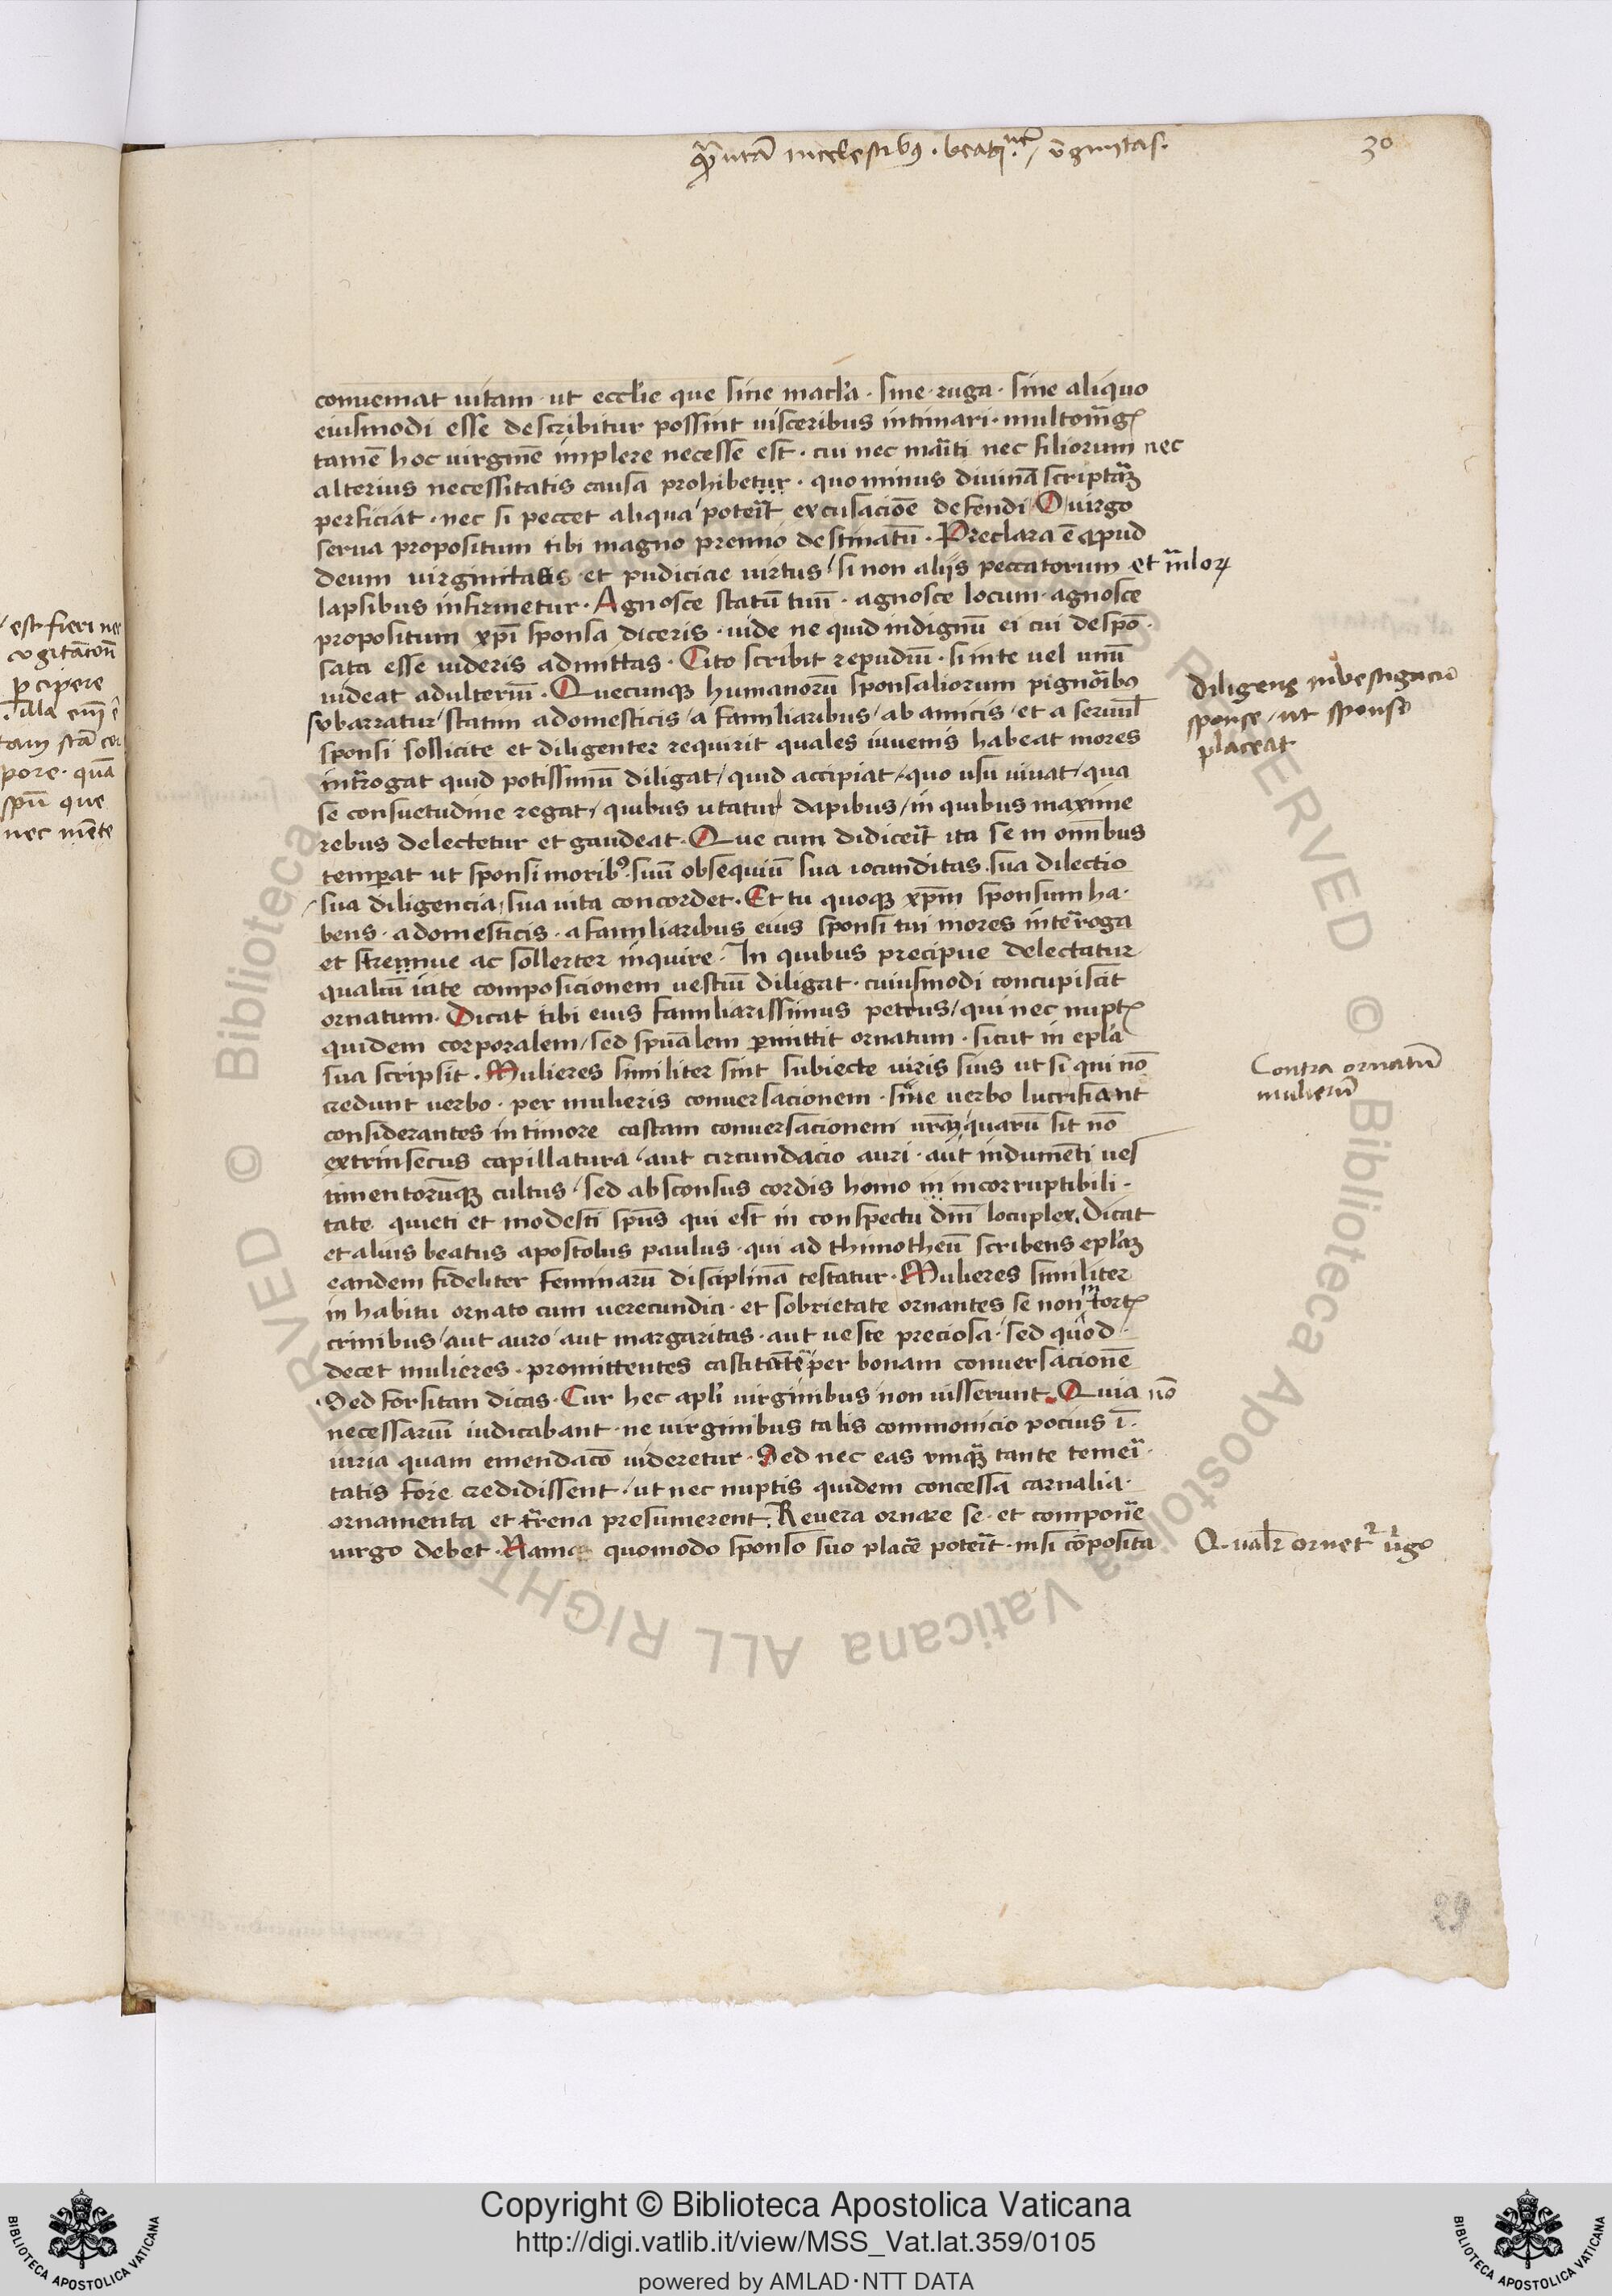 30
conueniat uitam · ut eccl'ie que sine macl'a · sine · ruga · sine aliquo
eiusmodi esse describitur possint uisceribus intimari · multo
tamē hoc uirginē implere necesse est · cui nec mariti nec filiorum nec
alterius necessitatis causa prohibetur · quo minus diuinā scripturaꝫ
perficiat · nec si peccet aliqua poterit excusacionē defendi O uirgo
serua propositum tibi magno premio destinatū · Preclara ē apud
deum uirginitatis et pudicicie uirtus / si non aliis peccatorum et malorꝝ
lapsibus infirmetur · Agnosce statū tuū · agnosce locum · agnosce
propositum xp̄i sponsa diceris · uide ne quid indignū ei cui despō ·
sata esse uideris admittas · Cito scribit repudiū · si in te uel unū
uideat adulteriū · Quecunqꝫ humanorū sponsaliorum pignoribꝰ
subarratur / statim a domesticis / a familiaribus / ab amicis / et a
sponsi sollicite et diligenter requirit quales iuuenis habeat mores
interrogat quid potissimū diligat / quid accipiat / quo usu uiuat / qua
se consuetudine regat / quibus utatur dapibus / in quibus maxime
rebus delectetur et gaudeat · Que cum didicerit ita se in omnibus
temperat ut sponsi moribꝰ · suū obsequiū sua iocunditas · sua dilectio
sua diligencia / sua uita concordet · Et tu quoqꝫ xp̄m sponsum ha ·
bens · a domesticis · a familiaribus eius sponsi tui mores interroga
et strennue ac sollerter inquire · In quibus precipue delectatur
qualem in te composicionem uestiū diligat · cuiusmodi concupiscit
ornatum · Dicat tibi eius familiarissimus petrus / qui nec nupt
quidem corporalem / sed spūalem permittit ornatum · sicut in ep'la
sua scripsit · Mulieres similiter sint subiecte uiris suis ut si qui nō
credunt uerbo · per mulieris conuersacionem · sine uerbo lucrifiant
considerantes in timore castam conuersacionem ur̄aꝫ quarū sit nō
extrinsecus capillatura / aut circundacio auri · aut indumenti ues
timentorūqꝫ cultus / sed absconsus cordis homo in incorruptibili ·
tate quieti et modesti sp̄us qui est in conspectu dn̄i locuplex · Dicat
et alius beatus apostolus paulus · qui ad thimotheū scribens ep'laꝫ
eandem fideliter feminarū disciplinā testatur · Mulieres similiter
in habitu ornato cum uerecundia · et sobrietate ornantes se non in tort
crinibus / aut auro / aut margaritas · aut ueste preciosa / sed quod ·
decet mulieres · promittentes castitatē per bonam conuersacionē
Sed forsitan dicas · Cur hec apl'i uirginibus non iusserunt · Quia nō
necessariū iudicabant · ne uirginibus talis commonicio pocius ī ·
iuria quam emendacō uideretur · Sed nec eas umquā tante temeri ·
tatis fore credidissent / ut nec nuptis quidem concessa carnalia ·
ornamenta et terrena presumerent · Reuera ornare se · et componere
uirgo debet · Nam quomodo sponso suo placere poterit · nisi cōposita
Diligens inuestigacio
sponse / ut sponso
placeat
Contra ornatū
mulierū
Qualr̄ ornetur uirgo
est fieri nec
cogitacōn
percipere
illa enī ē
tam
pore · quā
spū que
nec mēte
29
© Biblioteca Apostolica Vaticana ALL RIGHTS RESERVED © Biblioteca Apostolica Vaticana ALL RIGHTS RESERVED
Copyright © Biblioteca Apostolica Vaticana
http://digi.vatlib.it/view/MSS_Vat.lat.359/0105
powered by AMLAD·NTT DATA
BIBLIOTECA APOSTOLICA VATICANA
BIBLIOTECA APOSTOLICA VATICANA